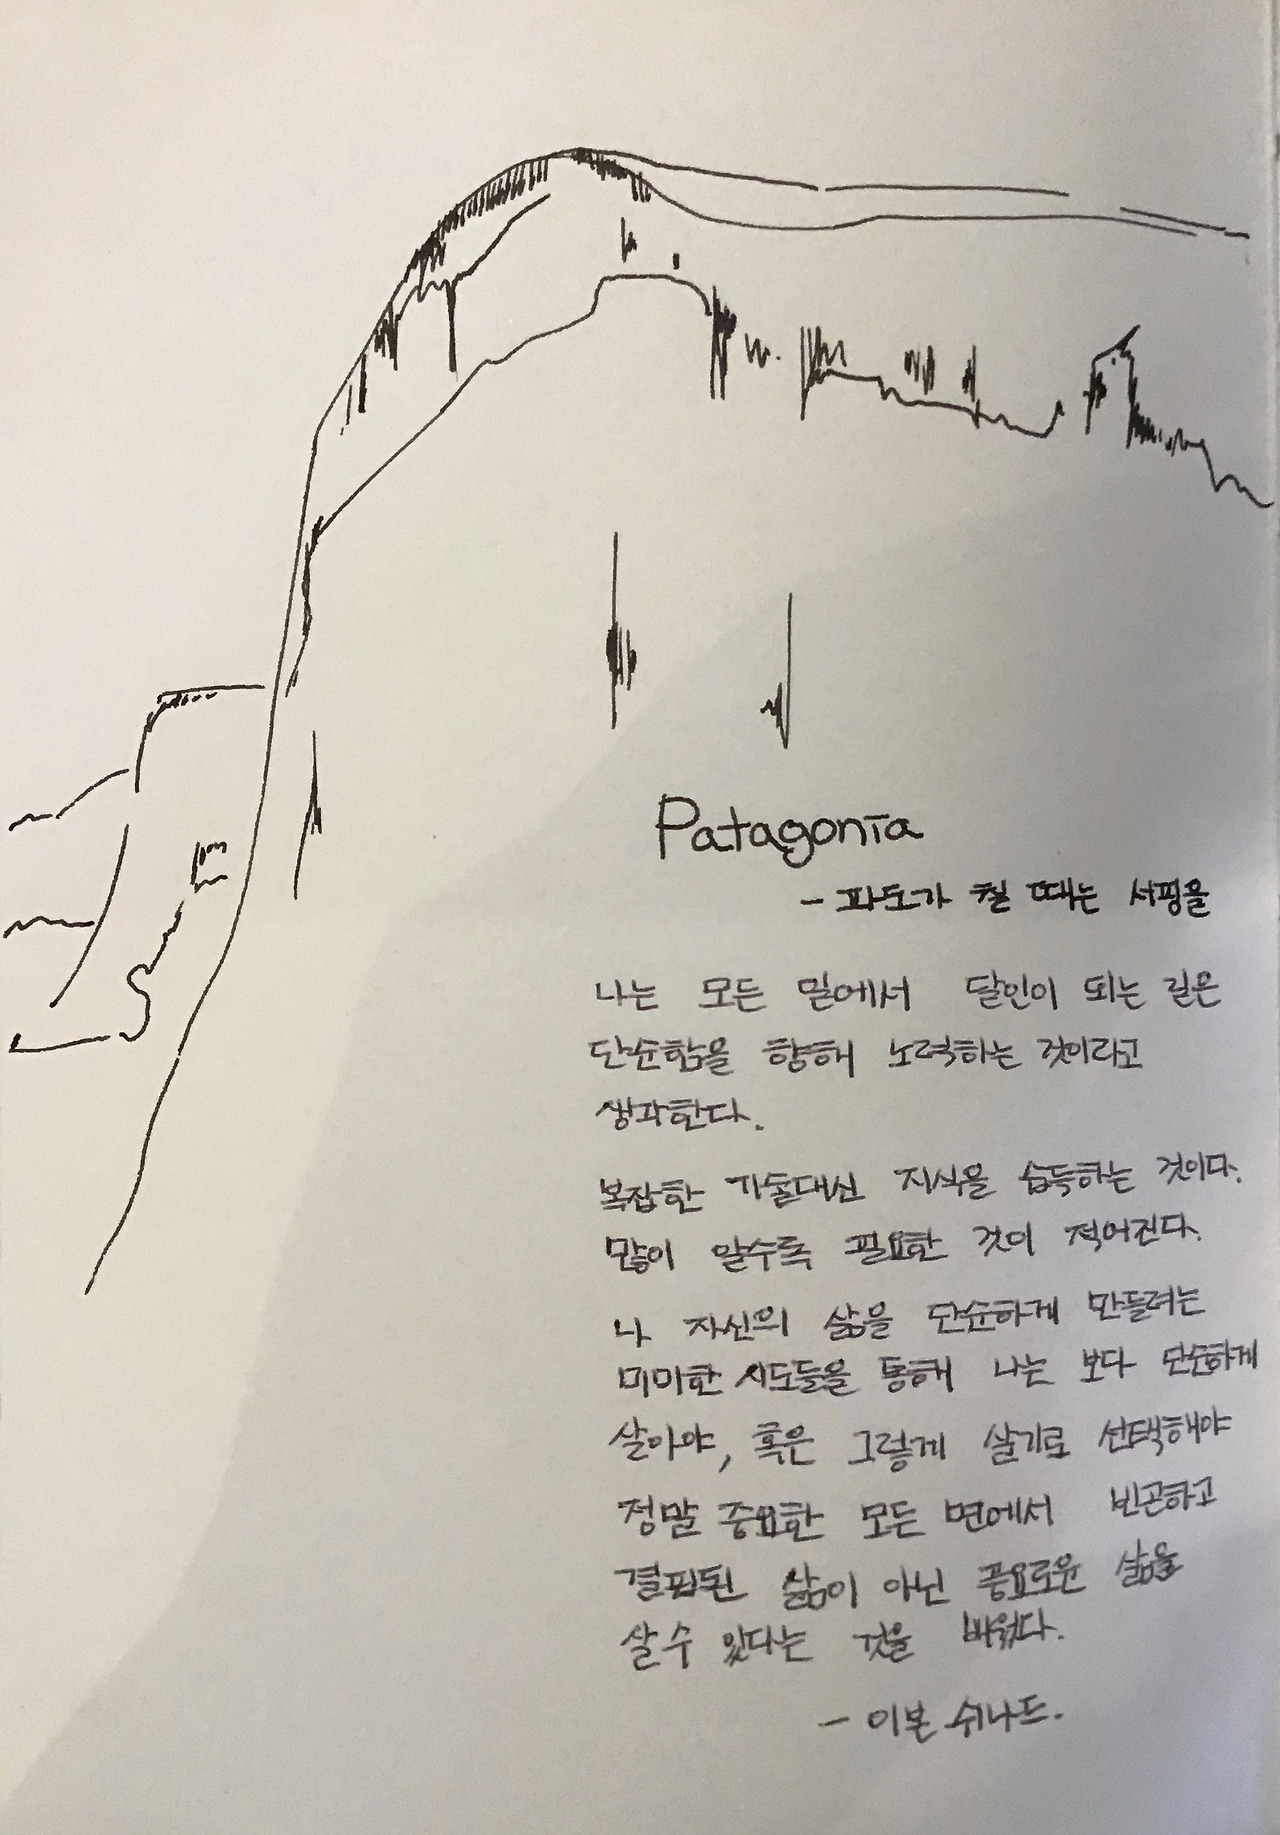 Patagonia
- 파도가 칠 때는 서핑을
나는 모든 일에서 달인이 되는 길은
단순함을 향해 노력하는 것이라고
생각한다.
복잡한 기술대신 지식을 습득하는 것이다.
많이 알수록 필요한 것이 적어진다.
나 자신의 삶을 단순하게 만들려는
미미한 시도들을 통해 나는 보다 단순하게
살아야, 혹은 그렇게 살기로 선택해야
정말 중요한 모든 면에서 빈곤하고
결핍된 삶이 아닌 풍요로운 삶을
살수 있다는 것을 배웠다.
- 이본 쉬나드.